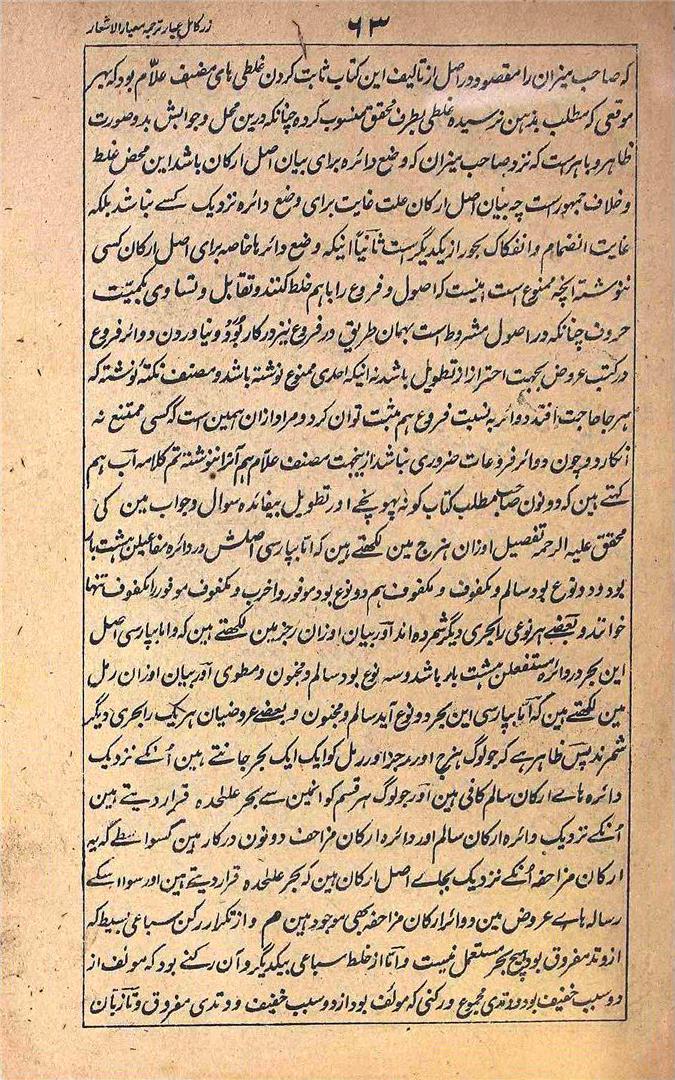 زر کامل عیار ترجمہ معیار الاشعار
۶۳
کہ صاحب میزان را مقصود در اصل از تالیف این کتاب ثابت کردن غلطی ہای مصنف علّام بود کہ بہر
موقعی کہ مطلب بذہن نرسیدہ غلطی بطرف محقق منسوب کردہ چنانکہ درین محل و جوابش بدو صورت
ظاہر و باہر ست کہ نزد صاحب میزان کہ وضع دائرہ برای بیان اصل ارکان باشد این محض غلط
و خلاف جمہور ست چہ بیان اصل ارکان علت غایت برای وضع دائرہ نزدیک کسے نباشد بلکہ
غایت انضمام و انفکاک بحور از یکدیگر ست ثانیاً اینکہ وضع دائرہا خاصہ برای اصل ارکان کسی
ننوشتہ آنچہ ممنوع است اینست کہ اصول و فروع را باہم خلط کنند و تقابل و تساوی بکمیّت
حروف چنانکہ در اصول مشروط ست بہمان طریق در فروع نیز درکار بُوَد و نیاوردن دوائر فروع
در کتب عروض بجہت احتراز از تطویل باشد نہ اینکہ احدی ممنوع نوشتہ باشد و مصنف نکتۂ نوشتہ کہ
ہر جا حاجت افتد دوائر بہ نسبت فروع ہم مثبت توان کرد و مراد ازان ہمین ست کہ کسی ممتنع نہ
انکارد و چون دوائر فروعات ضروری نباشد ازینجہت مصنف علّام ہم آنرا ننوشتہ تم کلامہ اب ہم
کہتے ہین کہ دونون صاحب مطلب کتاب کو نہ پہونچے اور تطویل بیفائدہ سوال و جواب مین کی
محقق علیہ الرحمہ تفصیل اوزان ہزج مین لکھتے ہین کہ اما بپارسی اصلش در دائرہ مفاعیلن ہشت بار
بود و دو نوع بود سالم و مکفوف و مکفوف ہم دو نوع بود موفور و اخرب و مکفوف موفور را مکفوف تنہا
خوانند و بعضے ہر نوعی را بحری دیگر شمردہ اند اور بیان اوزان رجز مین لکھتے ہین کہ و اما بپارسی اصل
این بحر در دائرہ مستفعلن ہشت بار باشد و سہ نوع بود سالم و مخبون و مطوی اور بیان اوزان رمل
مین لکھتے ہین کہ اما بپارسی این بحر دو نوع آید سالم و مخبون و بعضے عروضیان ہر یک را بحری دیگر
شمرند پس ظاہر ہے کہ جو لوگ ہزج اور رجز اور رمل کو ایک ایک بحر جانتے ہین اُنکے نزدیک
دائرہ ہاے ارکان سالم کافی ہین اور جو لوگ ہر قسم کو انمین سے بحر علٰحدہ قرار دیتے ہین
اُنکے نزدیک دائرہ ارکان سالم اور دائرہ ارکان مزاحف دونون درکار ہین کسواسطے کہ یہ
ارکان مزاحفہ اُنکے نزدیک بجاے اصل ارکان ہین کہ بحر علٰحدہ قرار دیتے ہین اور سوا اسکے
رسالہ ہاے عروض مین دوائر ارکان مزاحفہ بھی موجود ہین ھم و از تکرار رکن سباعی بسیط کہ
از وتد مفروق بود ہیچ بحر مستعمل نیست و اما از خلط سباعی بیکدیگر و آن رکنے بود کہ مولف از
دو سبب خفیف بود و وتدی مجموع و رکنی کہ مولف بود از دو سبب خفیف و وتدی مفروق و تازیان